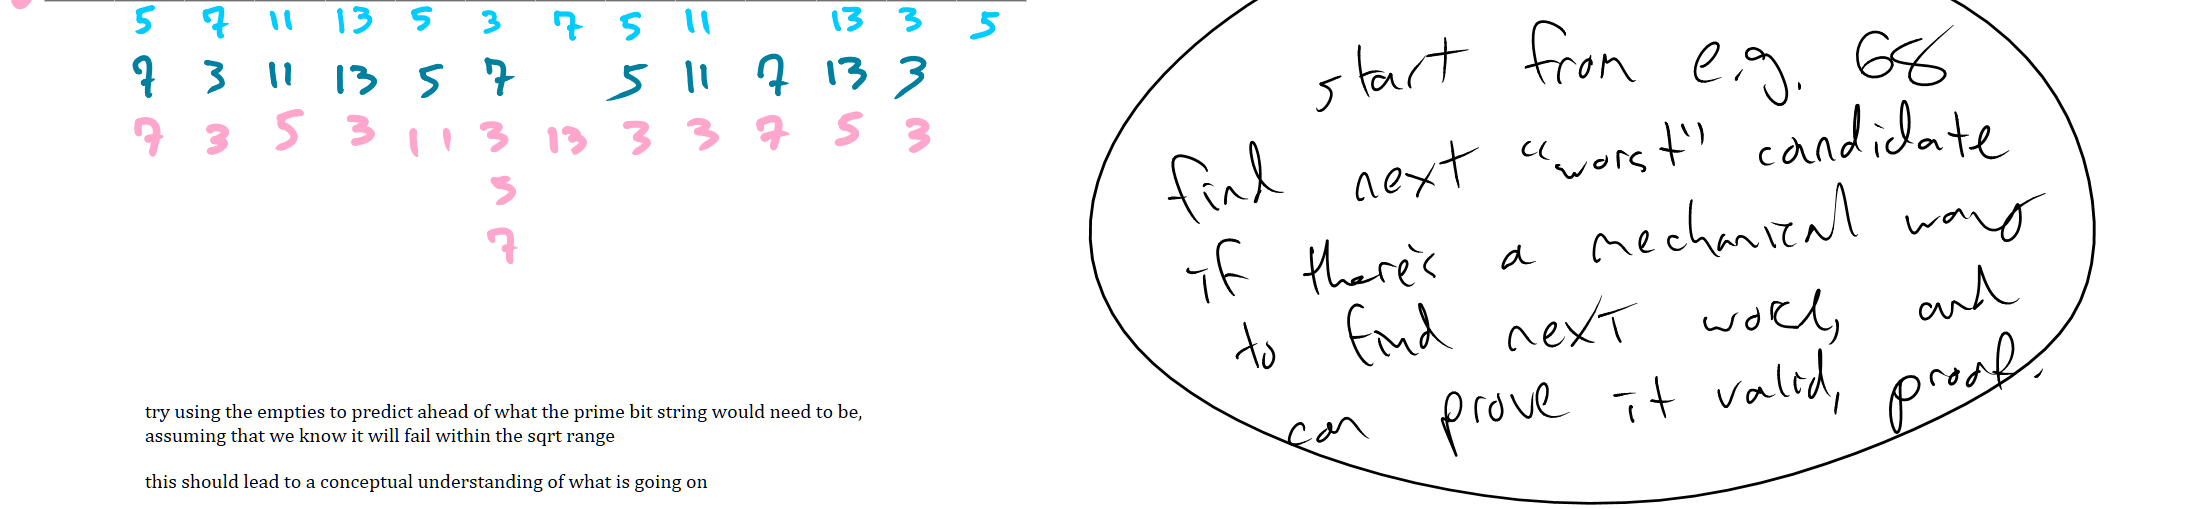 5 7 11 13 5 3 7 5 11 13 3 5
7 3 11 13 5 7 5 11 7 13 3
7 3 5 3 11 3 13 3 3 7 5 3
5
7
try using the empties to predict ahead of what the prime bit string would need to be,
assuming that we know it will fail within the sqrt range
this should lead to a conceptual understanding of what is going on
start from e.g. 68
find next "worst" candidate
if there's a mechanical way
to find next word, and
can prove it valid, proof.